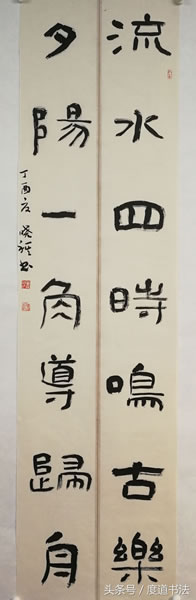 流水四時鳴古樂
夕陽一角導歸舟
丁酉夏
头条号/度道书法